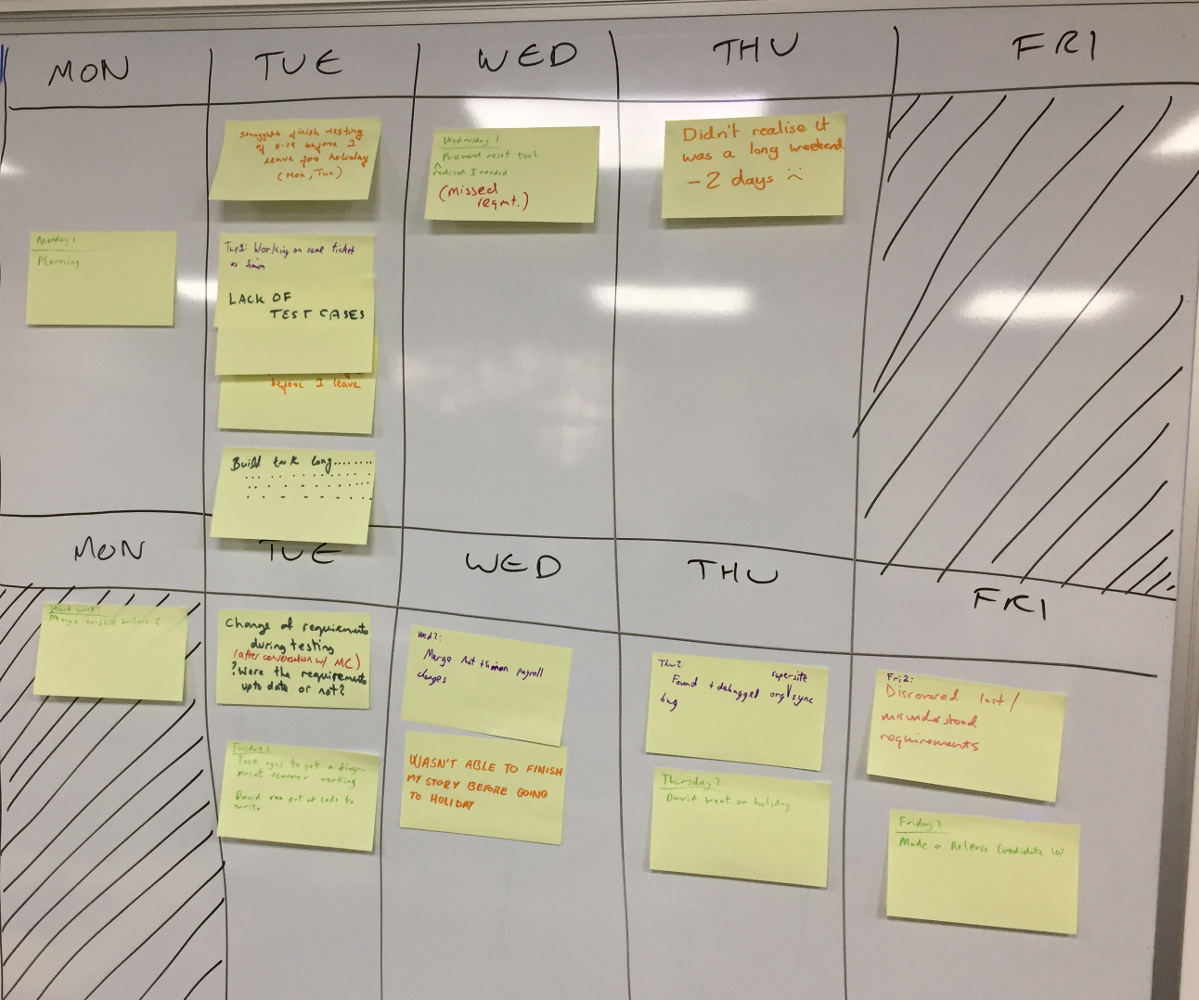 MON
TUE
WED
THU
FRI
Monday 1
Planning
finish testing
of before I
leave for holiday
(Mon, Tue)
Tue1: Working on same ticket
as Simon
LACK OF
TEST CASES
before I leave
Build took long........
Wednesday 1
Password reset tool
realised I needed
(missed
reqmt.)
Didn't realise it
was a long weekend
- 2 days
MON
TUE
WED
THU
FRI
Merge conflict
Change of requirements
during testing
(after conversation w/ MC)
? Were the requirements
upto date or not?
Tuesday
Took ages to get a finger
print scanner working
David ran out of code to
write
Wed2:
Merge + Simon payroll
changes
WASN'T ABLE TO FINISH
MY STORY BEFORE GOING
TO HOLIDAY
Thu2:
supersite
Found + debugged org sync
bug
Thursday 2
David went on holiday
Fri2:
Discovered lost /
misunderstood
requirements
Friday 2
Made a Release Candidate